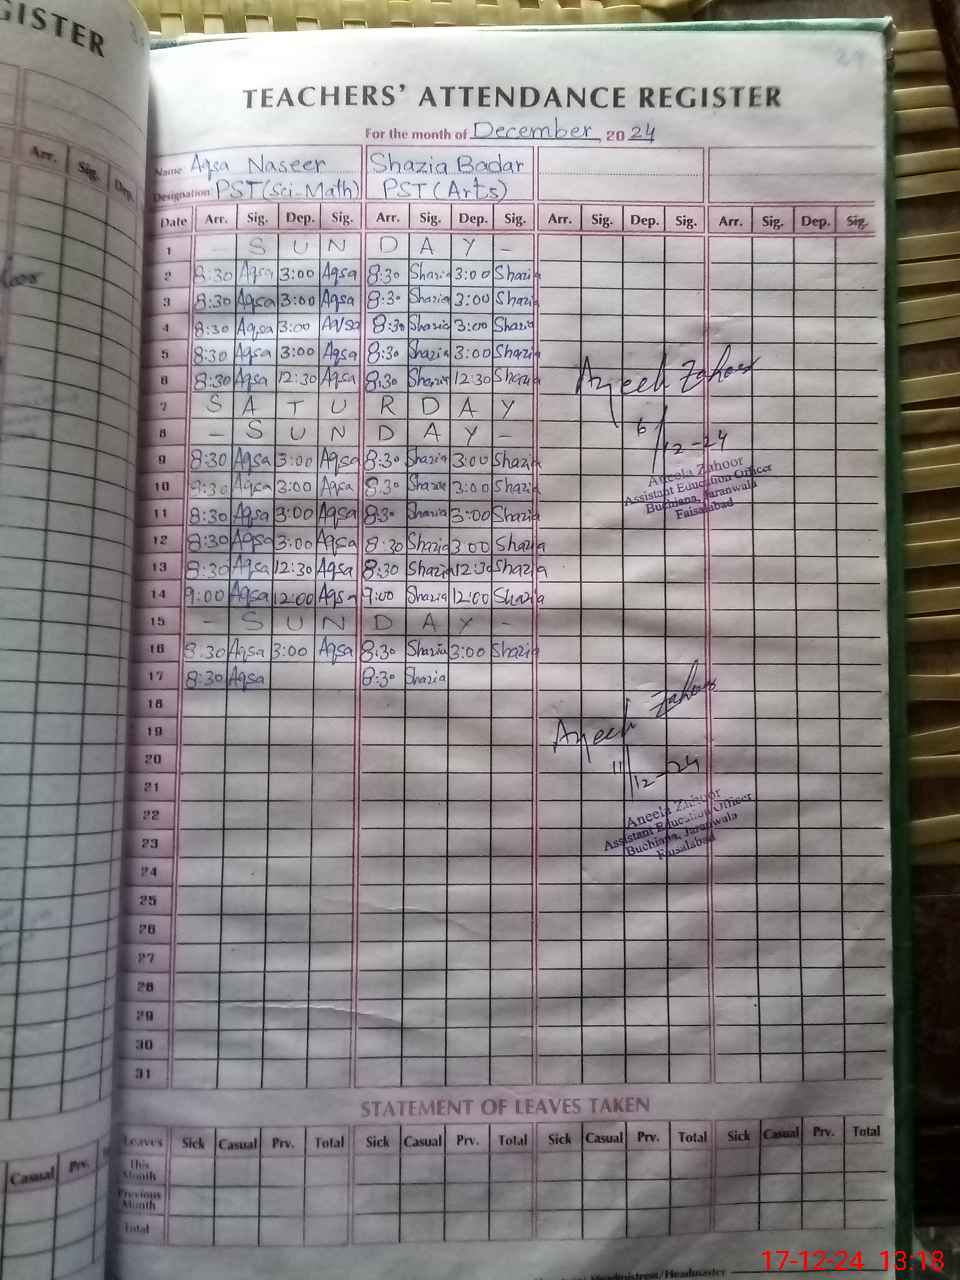 GISTER
TEACHERS' ATTENDANCE REGISTER
For the month of December 2024
Name Aqsa Naseer Shazia Badar
Designation PST(Sci-Math) PST(Arts)
Arr. Sig. Dep.
Date Arr. Sig. Dep. Sig. Arr. Sig. Dep. Sig. Arr. Sig. Dep. Sig. Arr. Sig. Dep. Sig.
1 - S U N D A Y -
2 8:30 Aqsa 3:00 Aqsa 8:30 Shazia 3:00 Shazia
3 8:30 Aqsa 3:00 Aqsa 8:30 Shazia 3:00 Shazia
4 8:30 Aqsa 3:00 Aqsa 8:30 Shazia 3:00 Shazia
5 8:30 Aqsa 3:00 Aqsa 8:30 Shazia 3:00 Shazia
6 8:30 Aqsa 12:30 Aqsa 8:30 Shazia 12:30 Shazia
7 S A T U R D A Y
8 - S U N D A Y -
6/12-24
Aneela Zahoor
Assistant Education Officer
Buchiana, Jaranwala
Faisalabad
9 8:30 Aqsa 3:00 Aqsa 8:30 Shazia 3:00 Shazia
10 8:30 Aqsa 3:00 Aqsa 8:30 Shazia 3:00 Shazia
11 8:30 Aqsa 3:00 Aqsa 8:30 Shazia 3:00 Shazia
12 8:30 Aqsa 3:00 Aqsa 8:30 Shazia 3:00 Shazia
13 8:30 Aqsa 12:30 Aqsa 8:30 Shazia 12:30 Shazia
14 9:00 Aqsa 12:00 Aqsa 9:00 Shazia 12:00 Shazia
15 - S U N D A Y -
16 8:30 Aqsa 3:00 Aqsa 8:30 Shazia 3:00 Shazia
17 8:30 Aqsa 8:30 Shazia
18
19
20
21
11/12-24
Aneela Zahoor
Assistant Education Officer
Buchiana, Jaranwala
Faisalabad
22
23
24
25
26
27
28
29
30
31
STATEMENT OF LEAVES TAKEN
Leaves Sick Casual Prv. Total Sick Casual Prv. Total Sick Casual Prv. Total Sick Casual Prv. Total
This Month
Previous Month
Total
Casual Prv.
Headmistress/Headmaster
17-12-24 13:18